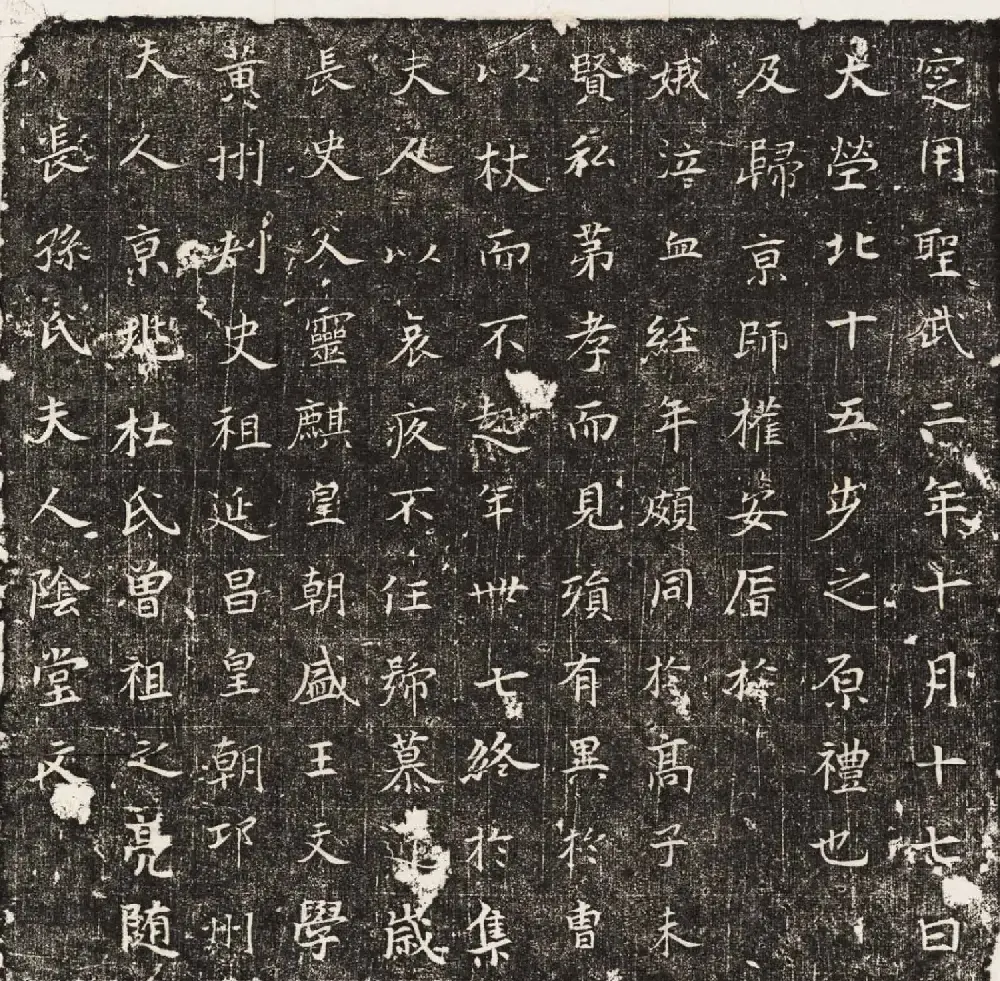 長孫氏夫人陰堂文
夫人京兆杜氏曾祖之亮随
黃州刾史祖延昌皇朝邛州
長史父靈麒皇朝盛王文學
夫人以哀疚不任號慕歲
以杖而不起年卌七終於集
賢私第孝而見殞有異於曹
娥泣血經年頗同於高子未
及歸京師權安厝於
大塋北十五步之原禮也
定用聖武二年十月十七日